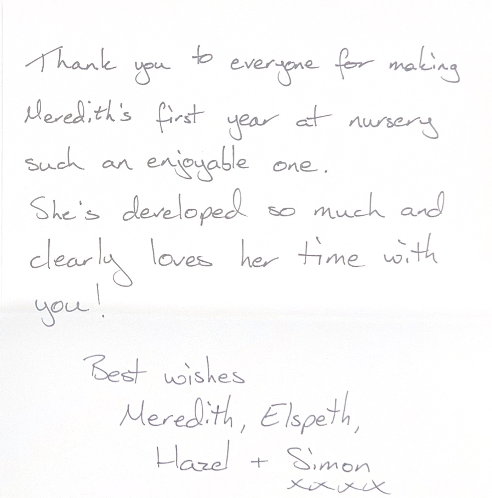 Thank you to everyone for making
Meredith's first year at nursery
such an enjoyable one.
She's developed so much and
clearly loves her time with
you!
Best wishes
Meredith, Elspeth,
Hazel + Simon
xxxx